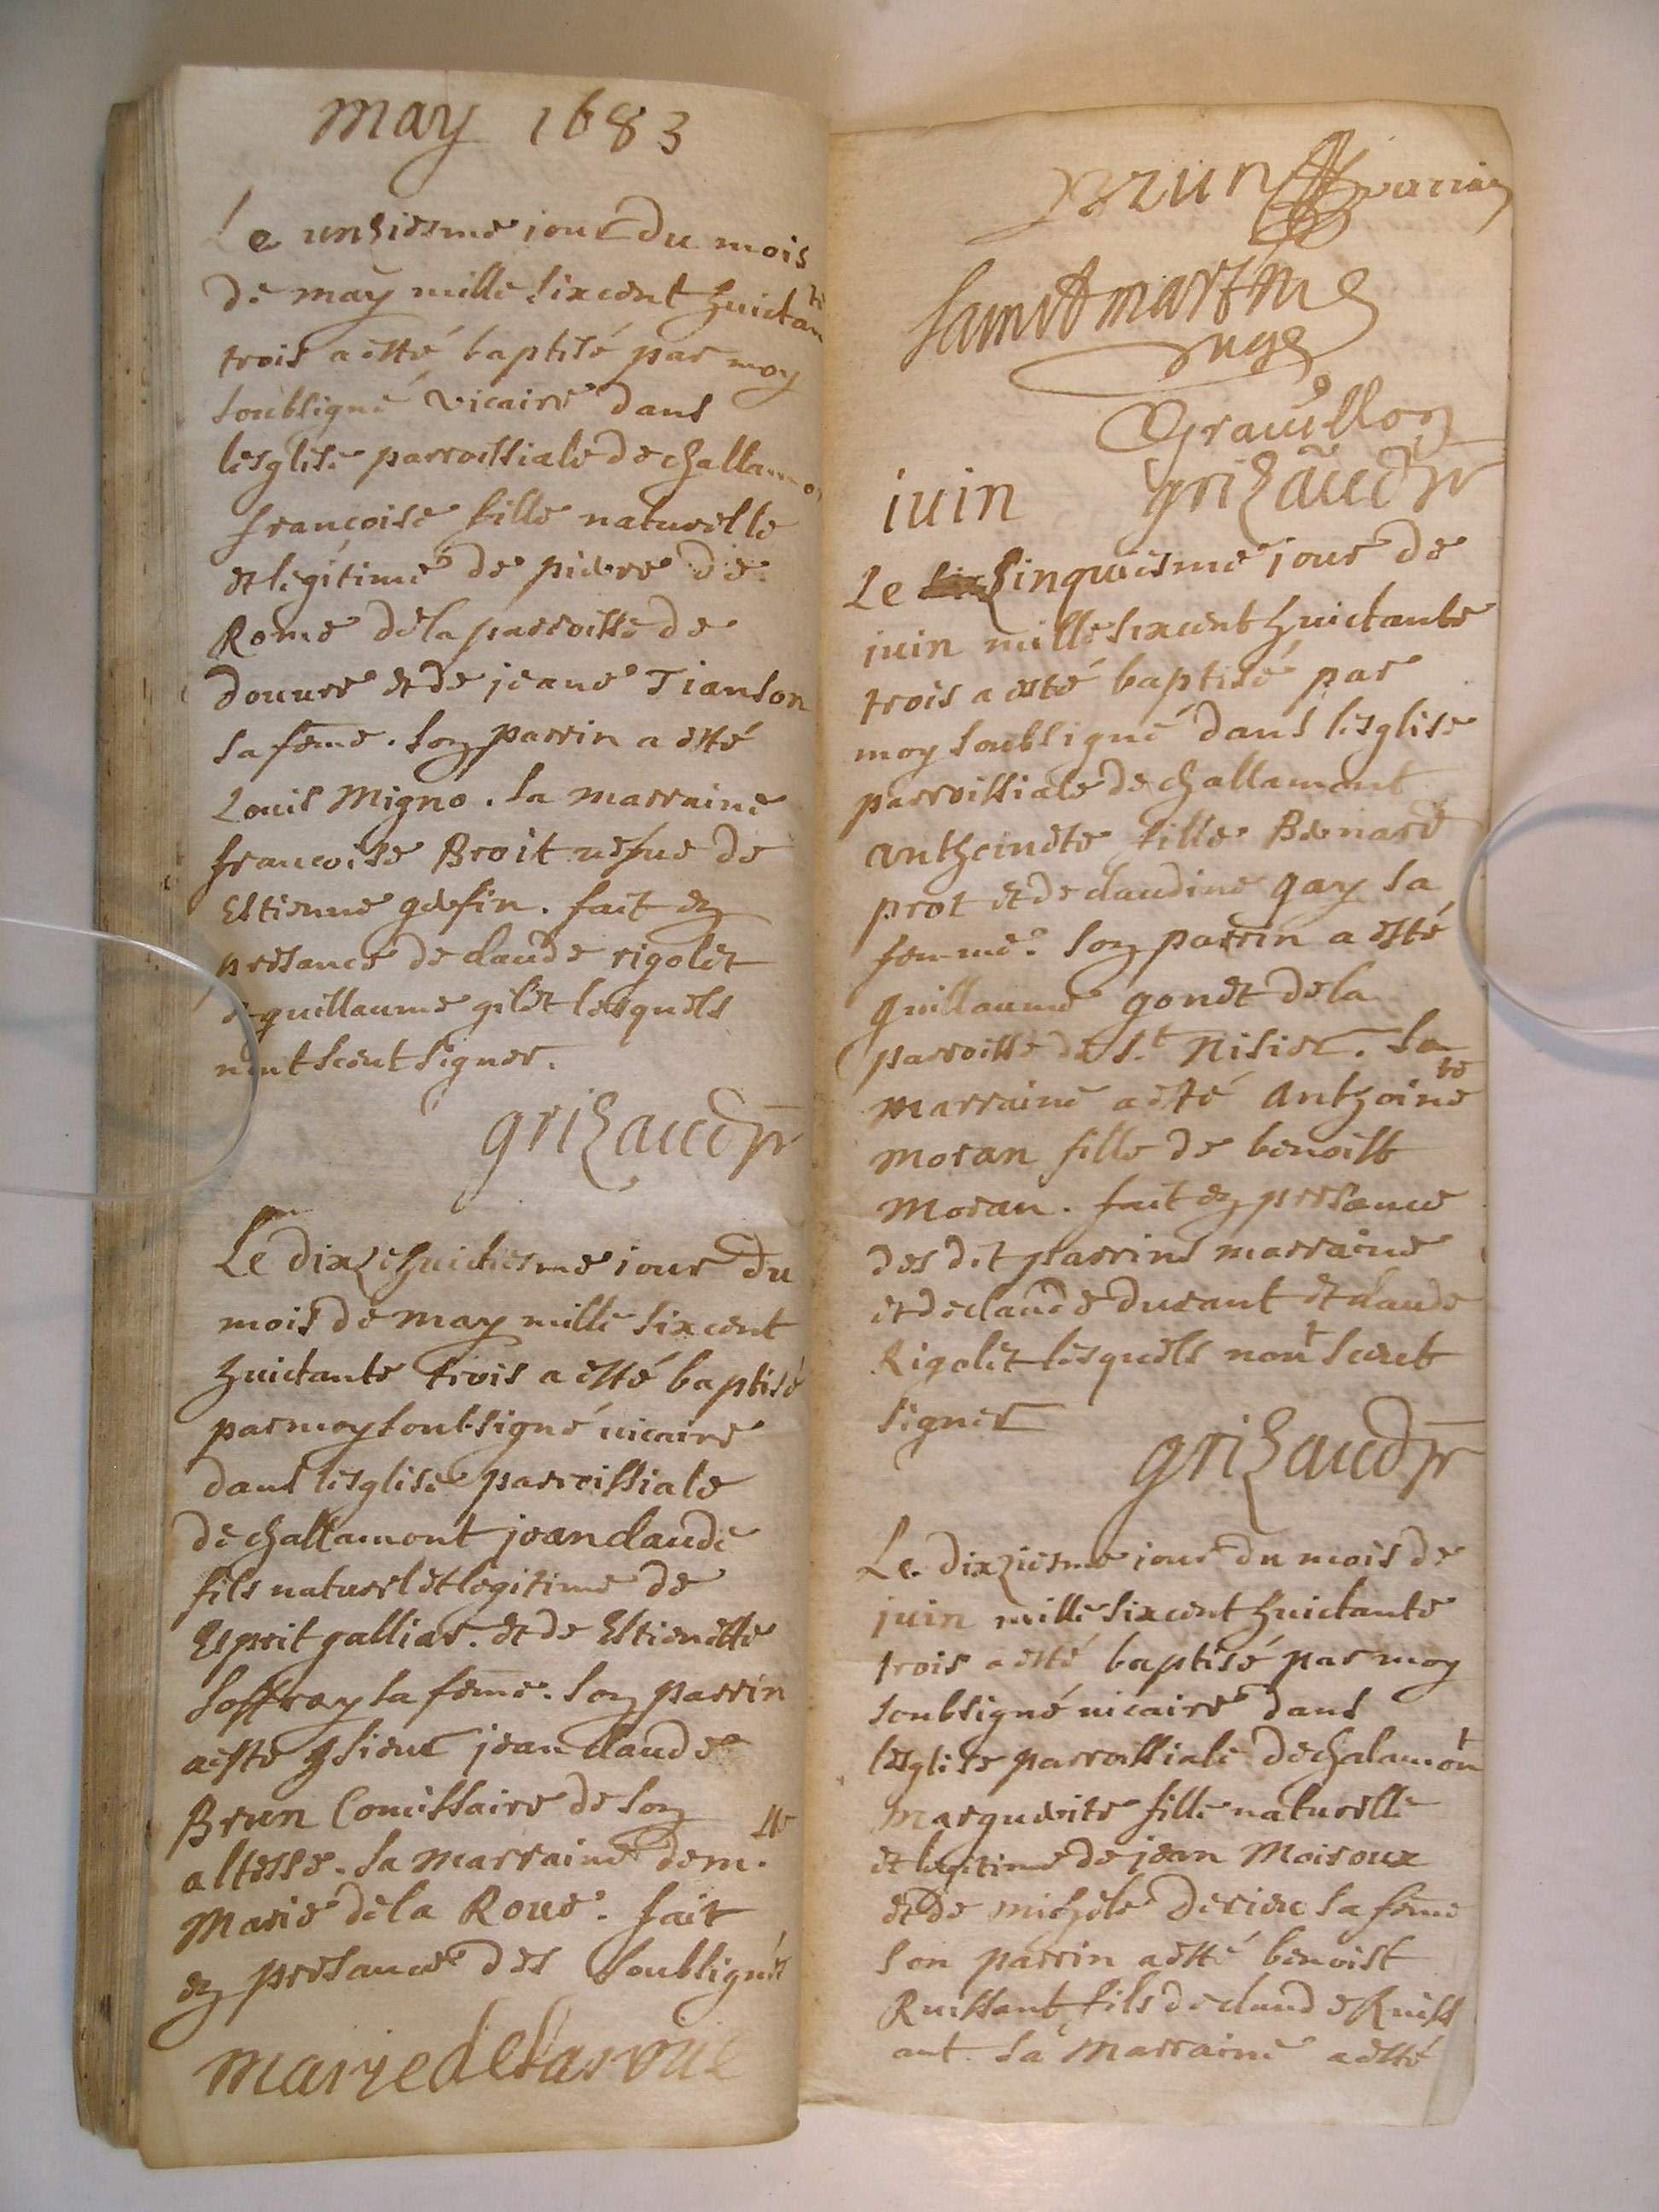 may 1683
Le unziesme jour du mois
de may mille sixcent huictante
trois a esté baptisé par moy
soubsigné vicaire dans
lesglise parroissiale de challamon
françoise fille naturelle
et legitime de pierre de
Rome dela parroisse de
douure et de jeane Tianson
sa feme. son parrin a esté
Louis Migno. sa marraine
francoise Broit uefue de
Estienne gerfin. fait en
presance de claude rigolet
et guillaume gilet lesquels
nont sceut signer.
grizaud pr
Le dixzehuictiesme jour du
mois de may mille sixcent
huictante trois a esté baptisé
par moy soubsigné uicaire
dans lesglise parroissiale
de challamont jean claude
fils naturel et legitime de
Esprit gallias. et de Estienette
soffray sa feme. son parrin
a este sieur jean claude
Brun Comissaire de son
altesse. sa marraine dem.lle
Marie dela Roue. fait
en presance des soubsignés
marye delaroue
Brun
sainct martin
juge
Grauillon
juin grizaud pr
Le sinquiesme jour de
juin mille sixcent huictante
trois a esté baptisé par
moy soubsigné dans lesglise
parroissiale de challamont
antheinete fille Benard
prot et de claudine gay sa
femme. son parrin a esté
guillaume gonet dela
parroisse de s.t Nisier. sa
marraine a esté anthoinete
moran fille de benoist
moran. fait en presance
des dit parrins marraine
et de claude durant et claude
Rigolet lesquels nont sceut
signer
grizaud pr
Le dixziesme jour du mois de
juin mille sixcent huictante
trois a esté baptisé par moy
soubsigné uicaire dans
lesglise parroissiale de chalamont
marguerite fille naturelle
et legitime de jean Moiroux
et de michele derieu sa feme
son parrin a esté benoist
Ruissant fils de claude Ruiss
ant. sa marraine a esté